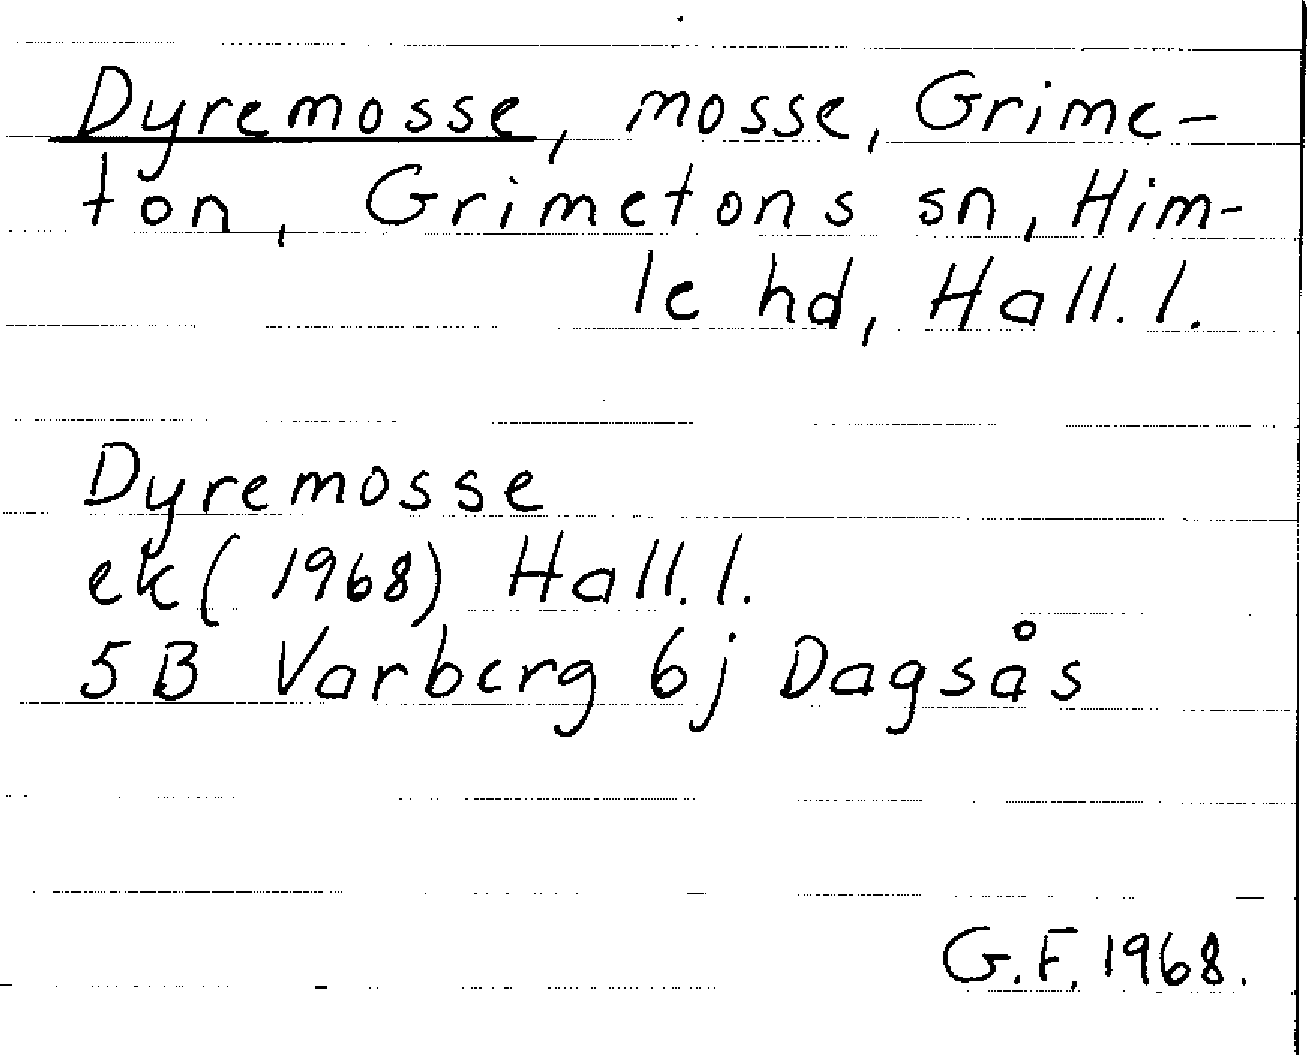 Dyremosse, mosse, Grime-
ton, Grimetons sn, Him-
le hd, Hall. l.
Dyremosse
ek (1968) Hall. l.
5B Varberg 6j Dagsås
G.F. 1968.